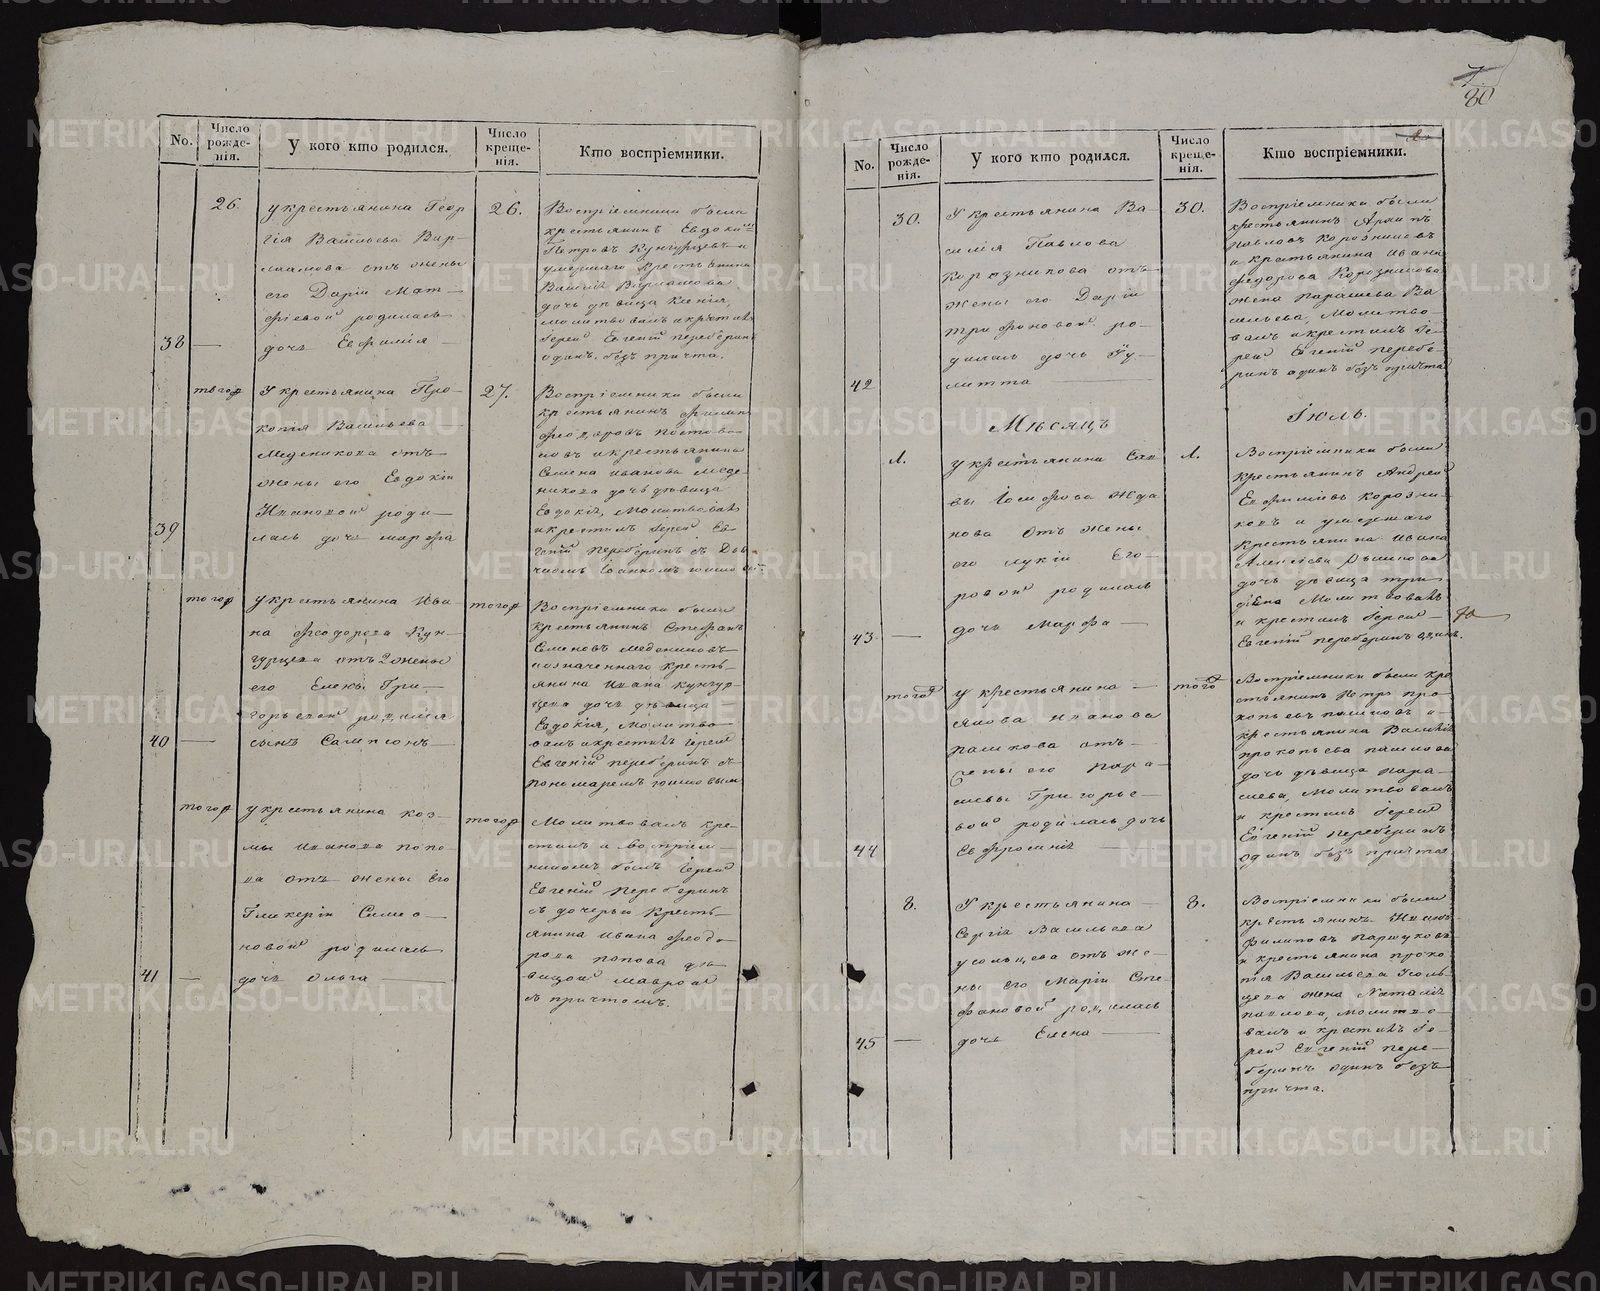 7.
80
No.
Число рожде-нія.
У кого кто родился.
Число креще-нія.
Кто воспріемники.
26.
у крестьянина Геор
гія Васильева Вар-
лаамова отъ жены
его Даріи Мат-
фіевой родилась
38 — дочь Евфимія
26.
Воспріемники были
крестьянинъ Евдоким
Петровъ Кунгурцевъ и
умершаго крестьянина
Василія Варламова
дочь девица Ксенія,
молитвовалъ и крестилъ
Іерей Евгеній Переберинъ
одинъ безъ причта.
тогож
У крестьянина Про-
копія Васильева
Меденикова отъ
жены его Евдокіи
Ивановой роди-
39
лась дочь Марфа
27.
Воспріемники были
крестьянинъ Филипъ
Феодоровъ
и крестьянина
Семена Иванова Меде-
никова дочь девица
Евдокія, Молитвовалъ
и крестилъ Іерей Ев-
геній Переберинъ съ Дья
чкомъ Іоанномъ
тогож
у крестьянина Ива-
на Феодорова Кун-
гурцева отъ 2 жены
его Елены Гри-
горьевой родился
40 — сынъ Сампсонъ
тогож
Воспріемники были
крестьянинъ Стефанъ
Семеновъ Медениковъ
означеннаго кресть-
янина Ивана Кунгур-
цева дочь девица
Евдокія, Молитво-
валъ и крестилъ Іерей
Евгеній Переберинъ съ
пономаремъ
тогож
у крестьянина Коз-
мы Иванова Попо-
ва отъ жены Его
Гликеріи Симео-
новой родилась
41 — дочь Ольга
тогож
Молитвовалъ кре-
стилъ и воспріем-
никомъ былъ Іерей
Евгеній Переберинъ
съ дочерью кресть-
янина Ивана Феодо-
рова Попова де-
вицой Маврой
съ причтомъ.
No.
Число рожде-нія.
У кого кто родился.
Число креще-нія.
Кто воспріемники.
30.
У крестьянина Ва-
силія Павлова
Корозникова отъ
жены его Даріи
Трифоновой ро-
дилась дочь Іу-
42
литта
30.
Воспріемники были
крестьянинъ
Павловъ Корозниковъ
и крестьянина Ивана
Федорова Корозникова
жена Параскева Ва
сильева, Молитво-
валъ и крестилъ Іе-
рей Евгеній Перебе-
ринъ одинъ безъ причта
Месяцъ Іюль.
1.
у крестьянина Сав
вы Іосифова Жда
нова отъ жены
его Лукіи Его-
ровой родилась
43 — дочь Марфа
1.
Воспріемники были
крестьянинъ Андрей
Ефимовъ Корозни-
ковъ и умершаго
крестьянина Ивана
Алексеева
дочь девица
Молитвовалъ
и крестилъ Іерей
Евгеній Переберинъ одинъ.
тогож
у крестьянина
Якова Иванова
Пашкова отъ
жены его Пара-
скевы Григорье-
вой родилась дочь
44
Ефросинія
тогож
Воспріемники были кре
стьянинъ Петръ Про-
копьевъ Пашковъ и
крестьянина Василія
Прокопьева Пашкова
дочь девица Пара-
скева, Молитвовалъ
и крестилъ Іерей
Евгеній Переберинъ
одинъ безъ причта
8.
У крестьянина
Сергія Васильева
Усольцева отъ же-
ны его Маріи Сте-
фановой родилась
45 — дочь Елена
8.
Воспріемники были
крестьянинъ Иванъ
Филиповъ Паршуковъ
и крестьянина Проко
пія Васильева Усоль
цева жена Наталія
Павлова, Молитво-
валъ и крестилъ Іе-
рей Евгеній Пере-
беринъ одинъ безъ
причта.
METRIKI.GASO-URAL.RU